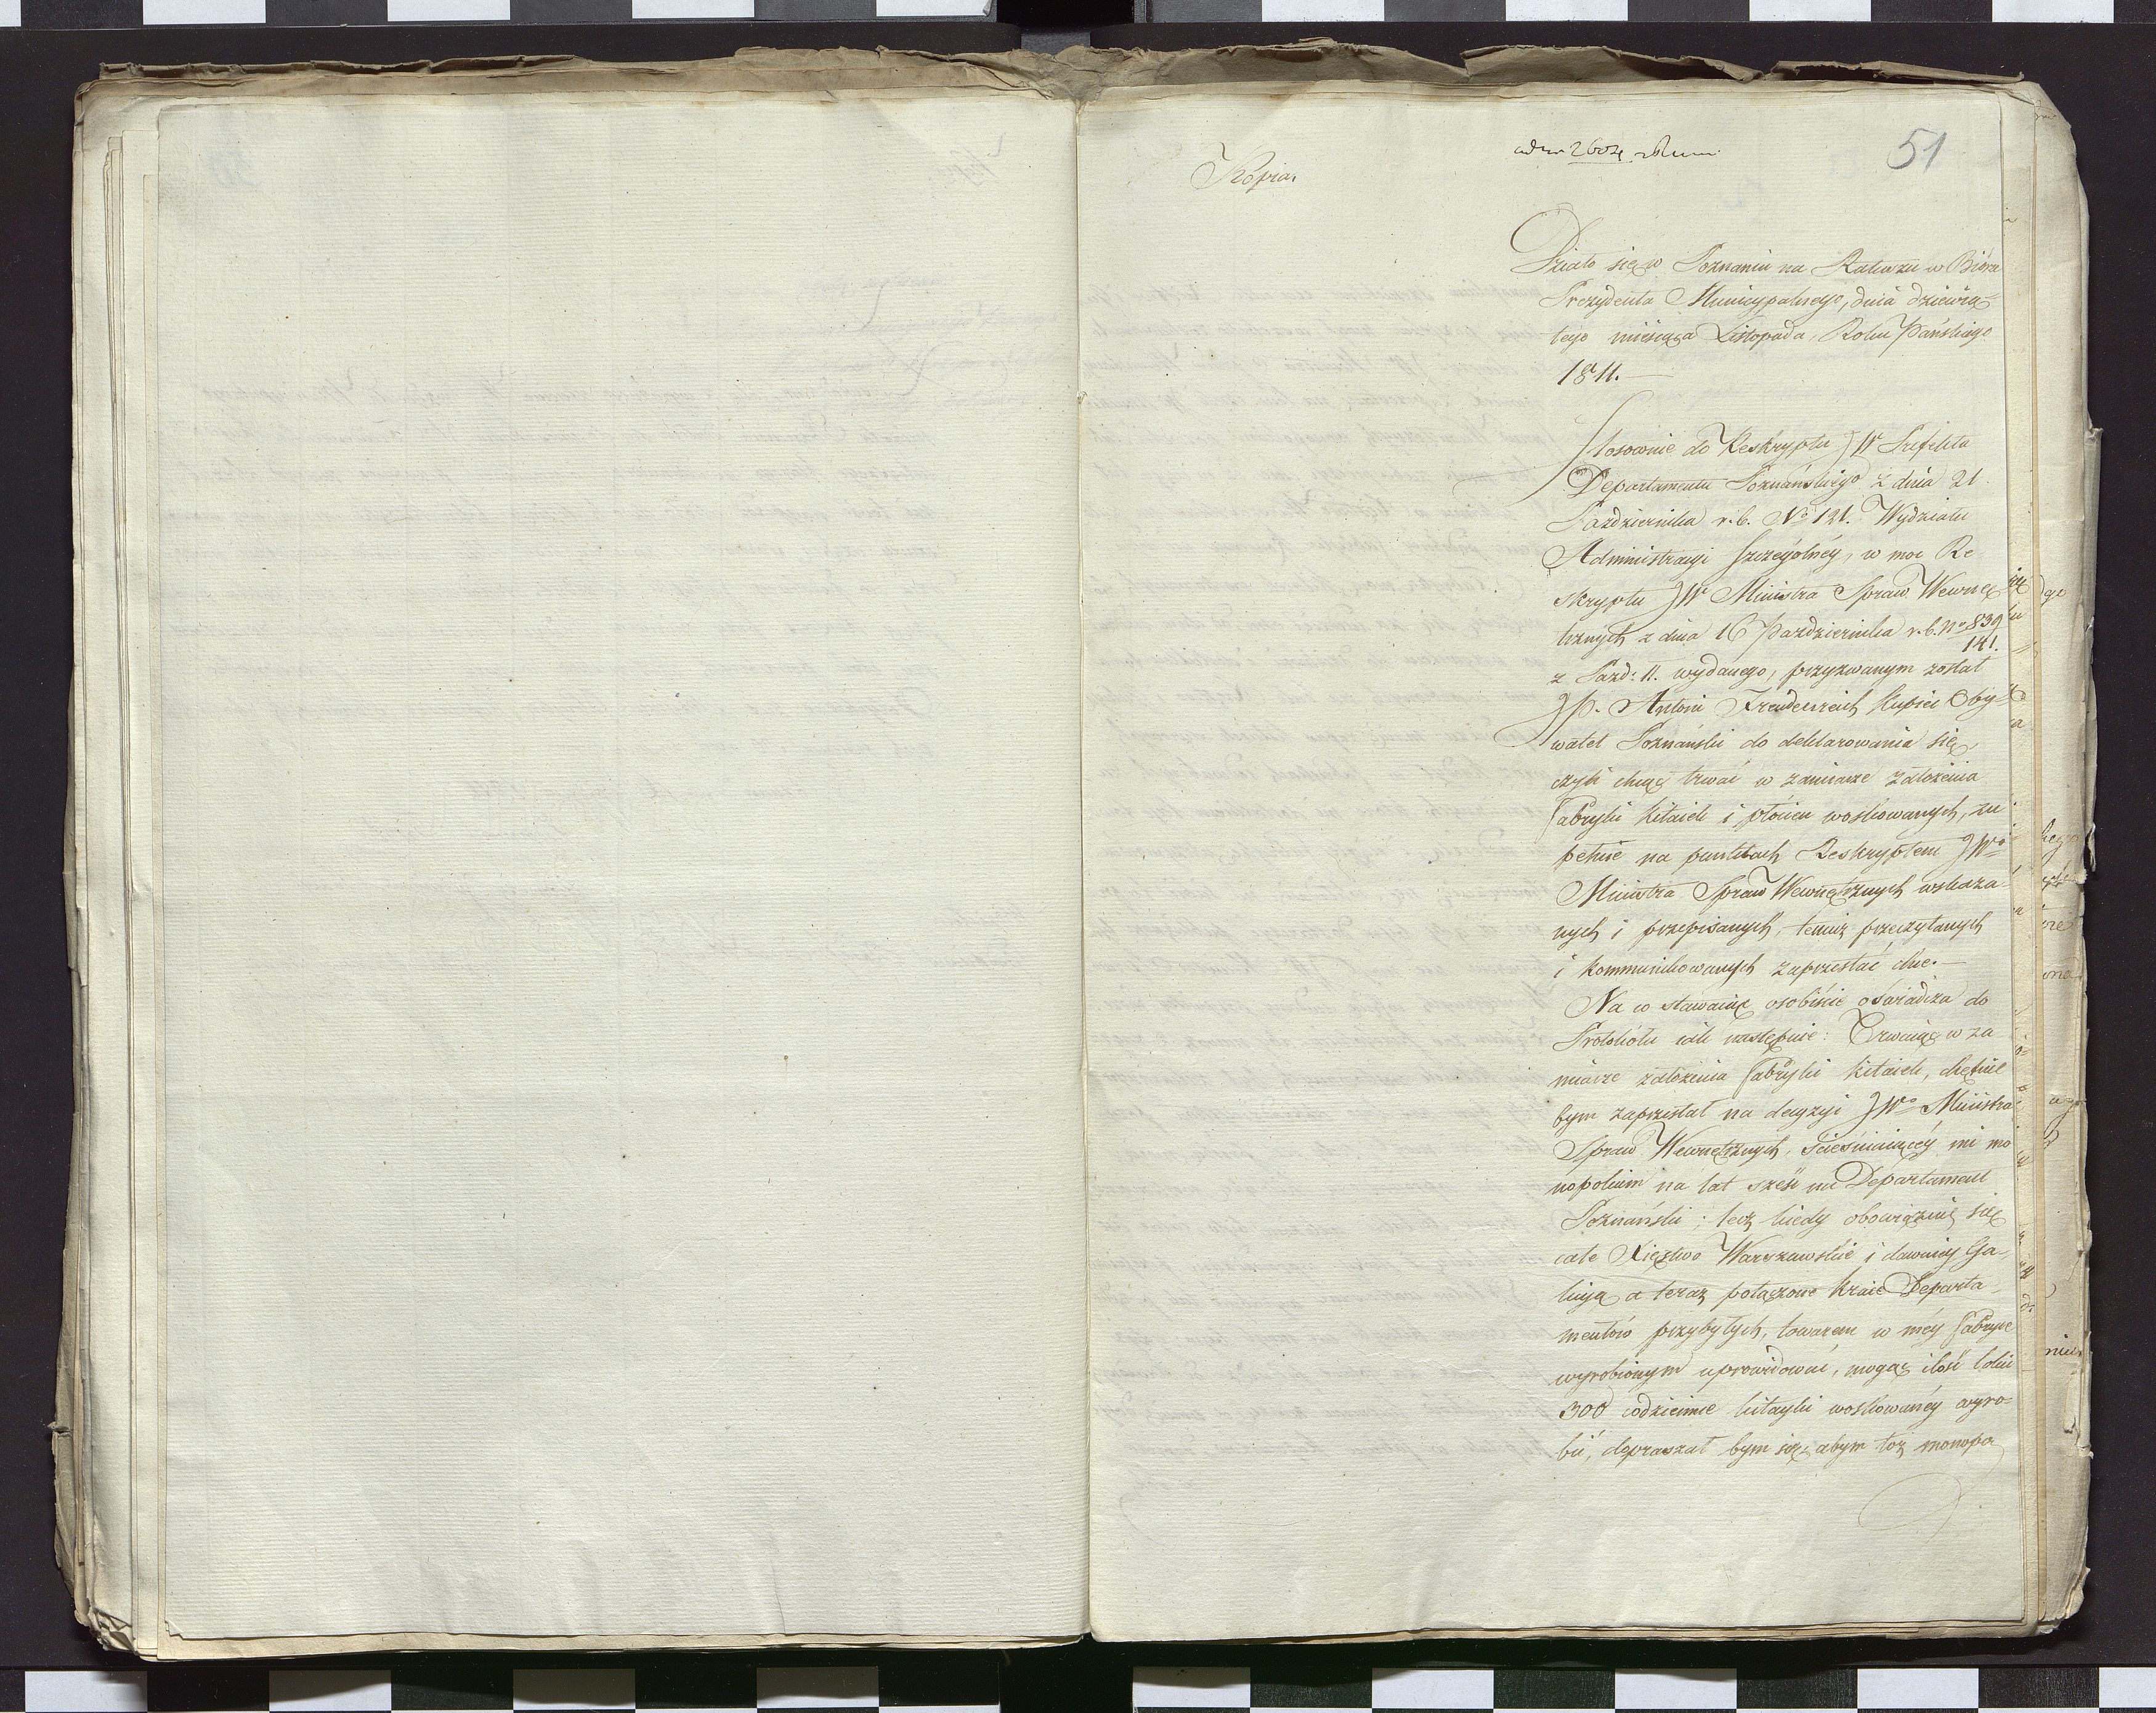 51
Kopia.
Działo się w Poznaniu na Ratuszu w Biórze
Prezydenta Municypalnego, dnia dziewią=
tego miesiąca Listopada, Roku Pańskiego
1811.
Stosownie do Reskryptu JW Prefekta
Departamentu Poznańskiego z dnia 21
Października r. b. No 121. Wydziału
Administracyi Szczególney, w moc Re
skryptu JW Ministra Spraw Wewnę
trznych z dnia 16 Października r. b. No 839
141.
z Paźd: 11. wydanego, przyzwanym został
JP. Antoni Freudenreich Kupiec Oby=
watel Poznański do deklarowania się,
czyli chcąc trwać w zamiarze założenia
Fabryki kitaiek i płócien woskowanych, zu
pełnie na punktach Reskryptem JWo
Ministra Spraw Wewnętrznych wskaza=
nych i przepisanych, temuż przeczytanych
i kommunikowanych zaprzestać chce.—
Na co stawaiąc osobiście oświadcza do
Protokółu iak następuie: Trwaiąc w za
miarze założenia Fabryki kitaiek, chętnie
bym zaprzestał na decyzyi JWo Ministra
Spraw Wewnętrznych, ścieśniaiącéy mi mo
nopolium na lat sześć na Departament
Poznański; lecz kiedy obowiązuię się
całe Xięztwo Warszawskie i dawniey Ga=
licyą a teraz połączone kraie Departa=
mentów przybyłych, towarem w méy Fabryce
wyrobionym uprowidować, mogąc ilość łokci
300 codziennie kitayki woskowanéy wyro=
bić, dopraszał bym się abym toż monopo